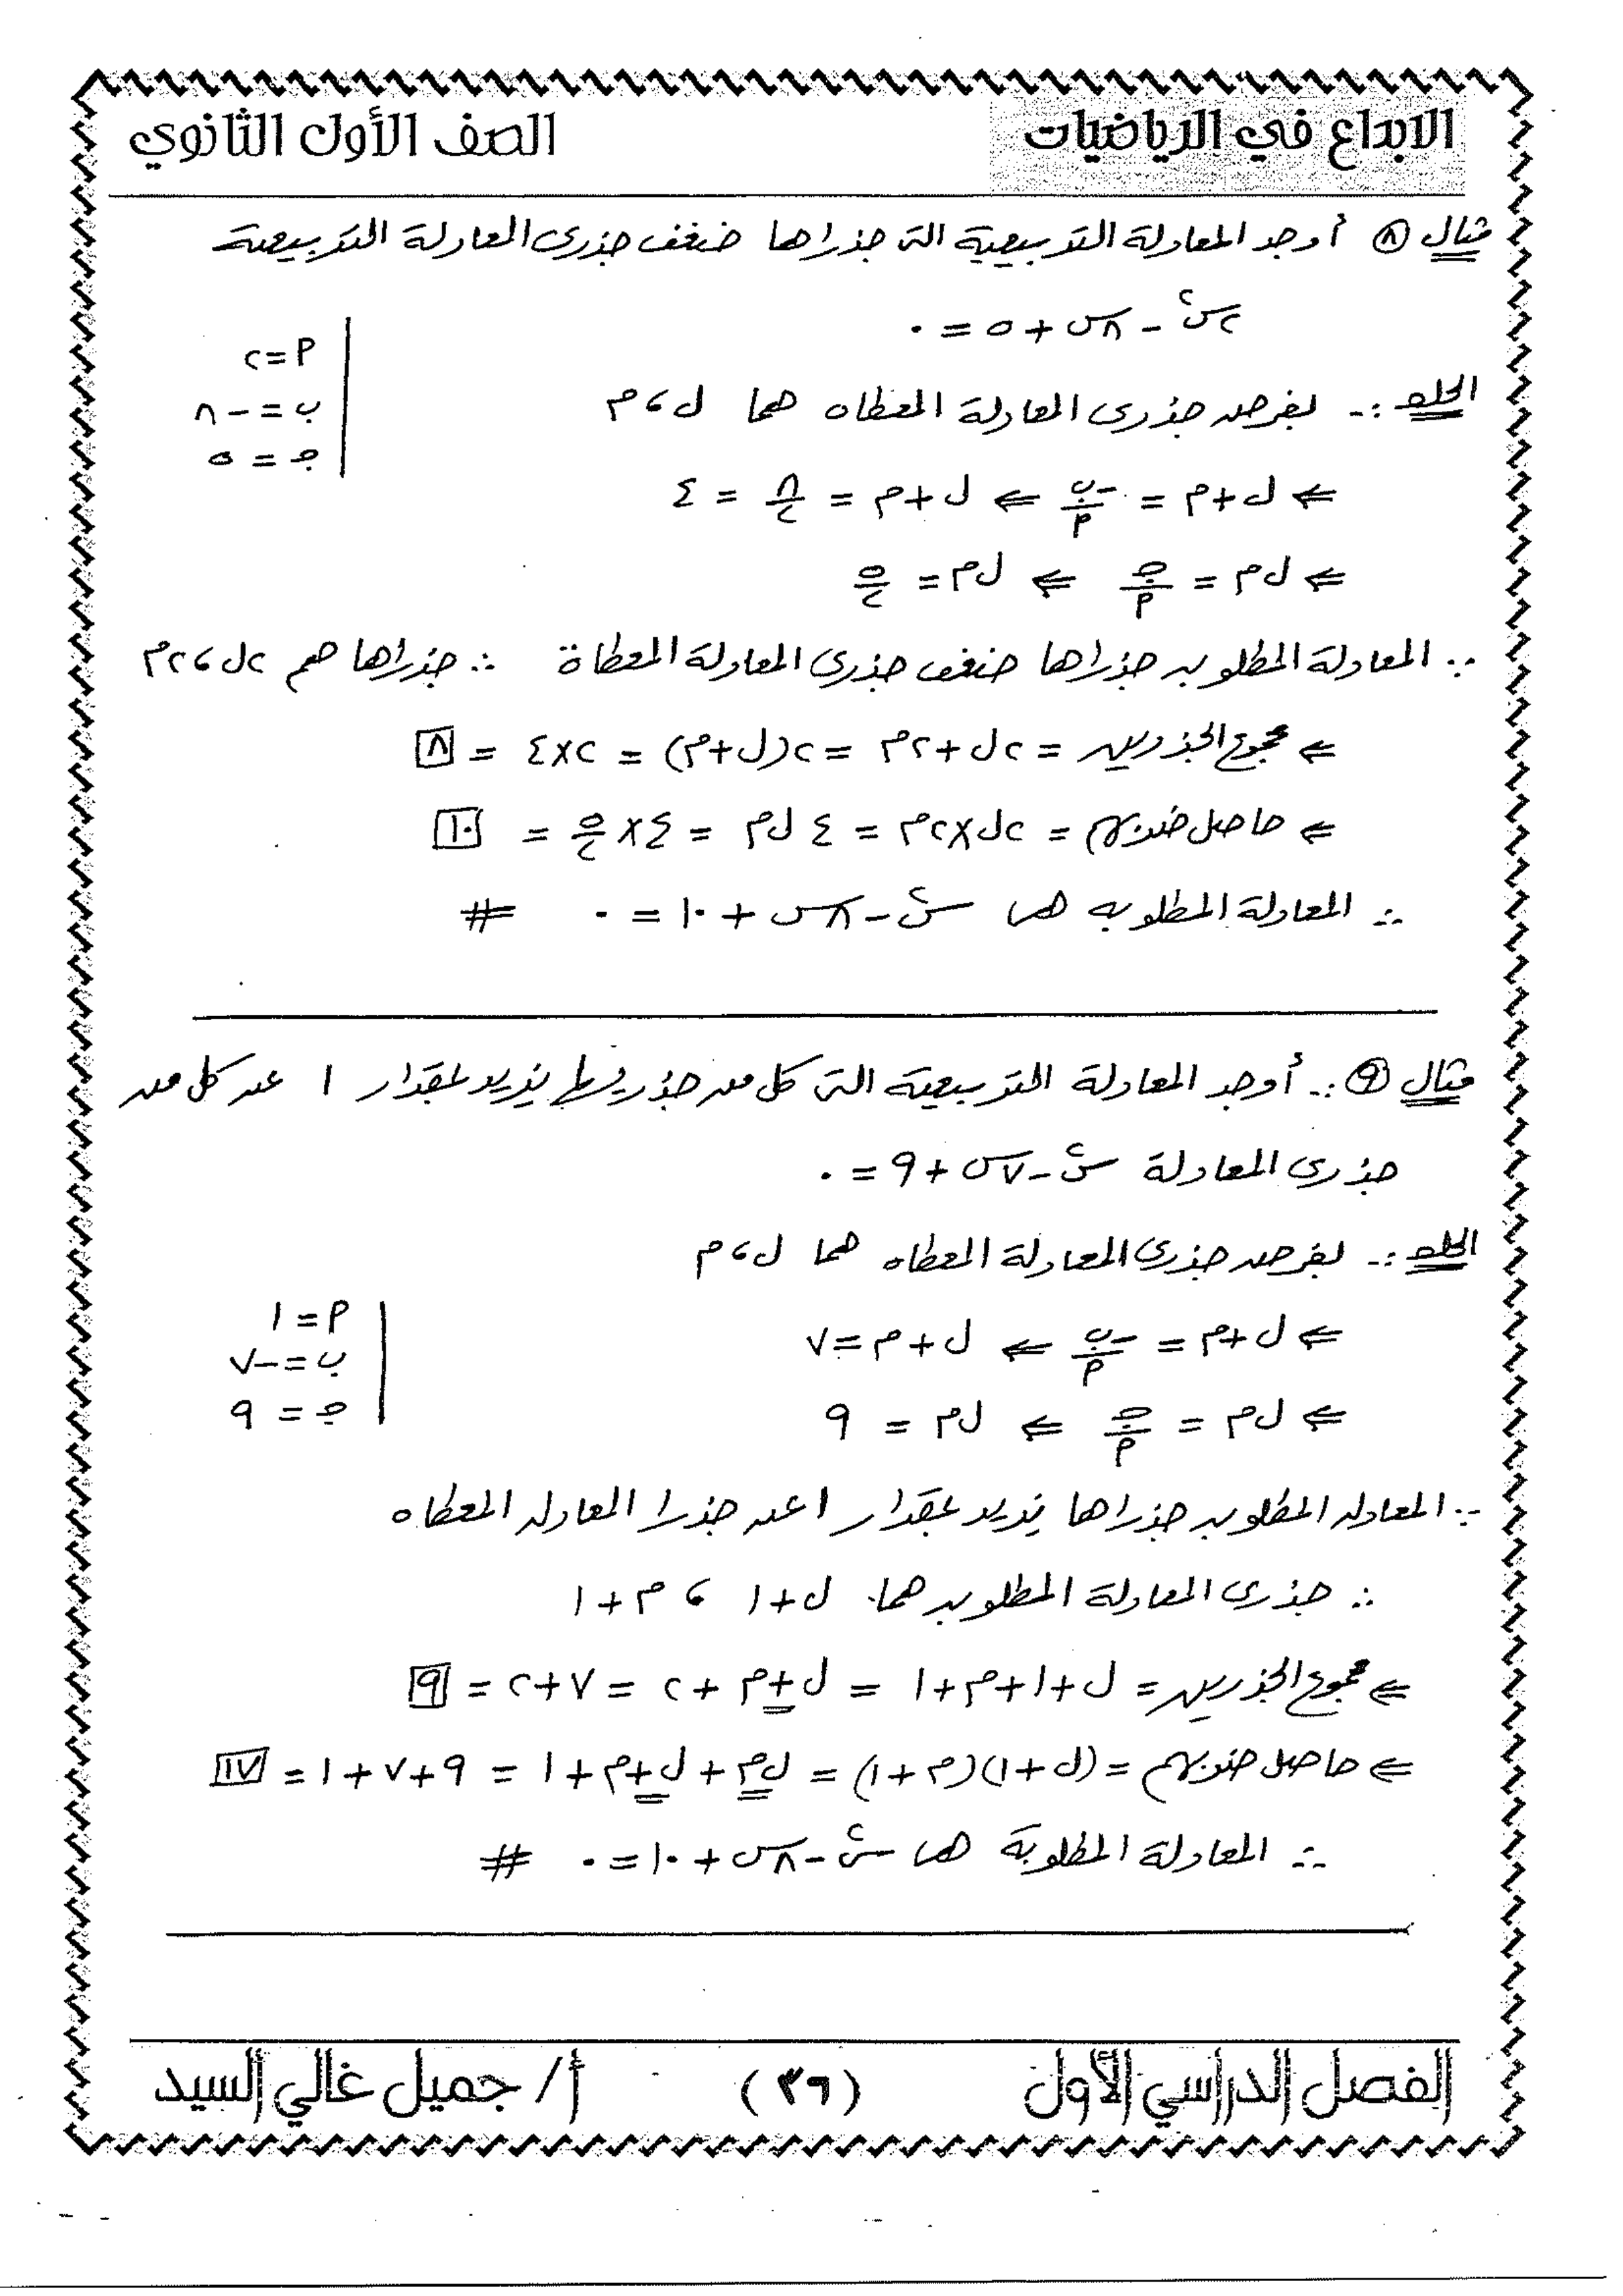 الابداع في الرياضيات
الصف الأول الثانوي
مثال ٨ أوجد المعادلة التربيعية التى جذراها ضعف جذرى المعادلة التربيعية
٢س٢ - ٨س + ٥ = ٠
أ = ٢
ب = -٨
جـ = ٥
الحل :- بفرض جذرى المعادلة المعطاه هما ل ، م
⇐ ل + م = -ب/أ ⇐ ل + م = ٨/٢ = ٤
⇐ ل م = جـ/أ ⇐ ل م = ٥/٢
∵ المعادلة المطلوبه جذراها ضعف جذرى المعادلة المعطاة ∴ جذراها هم ٢ل ، ٢م
⇐ مجموع الجذرين = ٢ل + ٢م = ٢(ل + م) = ٢×٤ = ٨
⇐ حاصل ضربهم = ٢ل × ٢م = ٤ ل م = ٤ × ٥/٢ = ١٠
∴ المعادلة المطلوبه هى س٢ - ٨س + ١٠ = ٠ #
مثال ٩ :- أوجد المعادلة التربيعية التى كل من جذريها يزيد بمقدار ١ عن كل من
جذرى المعادلة س٢ - ٧س + ٩ = ٠
الحل :- بفرض جذرى المعادلة المعطاه هما ل ، م
أ = ١
ب = -٧
جـ = ٩
⇐ ل + م = -ب/أ ⇐ ل + م = ٧
⇐ ل م = جـ/أ ⇐ ل م = ٩
∵ المعادله المطلوبه جذراها يزيد بمقدار ١ عن جذرا المعادله المعطاه
∴ جذرى المعادلة المطلوبه هما ل + ١ ، م + ١
⇐ مجموع الجذرين = ل + ١ + م + ١ = ل + م + ٢ = ٧ + ٢ = ٩
⇐ حاصل ضربهم = (ل + ١)(م + ١) = ل م + ل + م + ١ = ٩ + ٧ + ١ = ١٧
∴ المعادلة المطلوبة هى س٢ - ٨س + ١٠ = ٠ #
الفصل الدراسي الأول
(٣٦)
أ / جميل غالي السيد